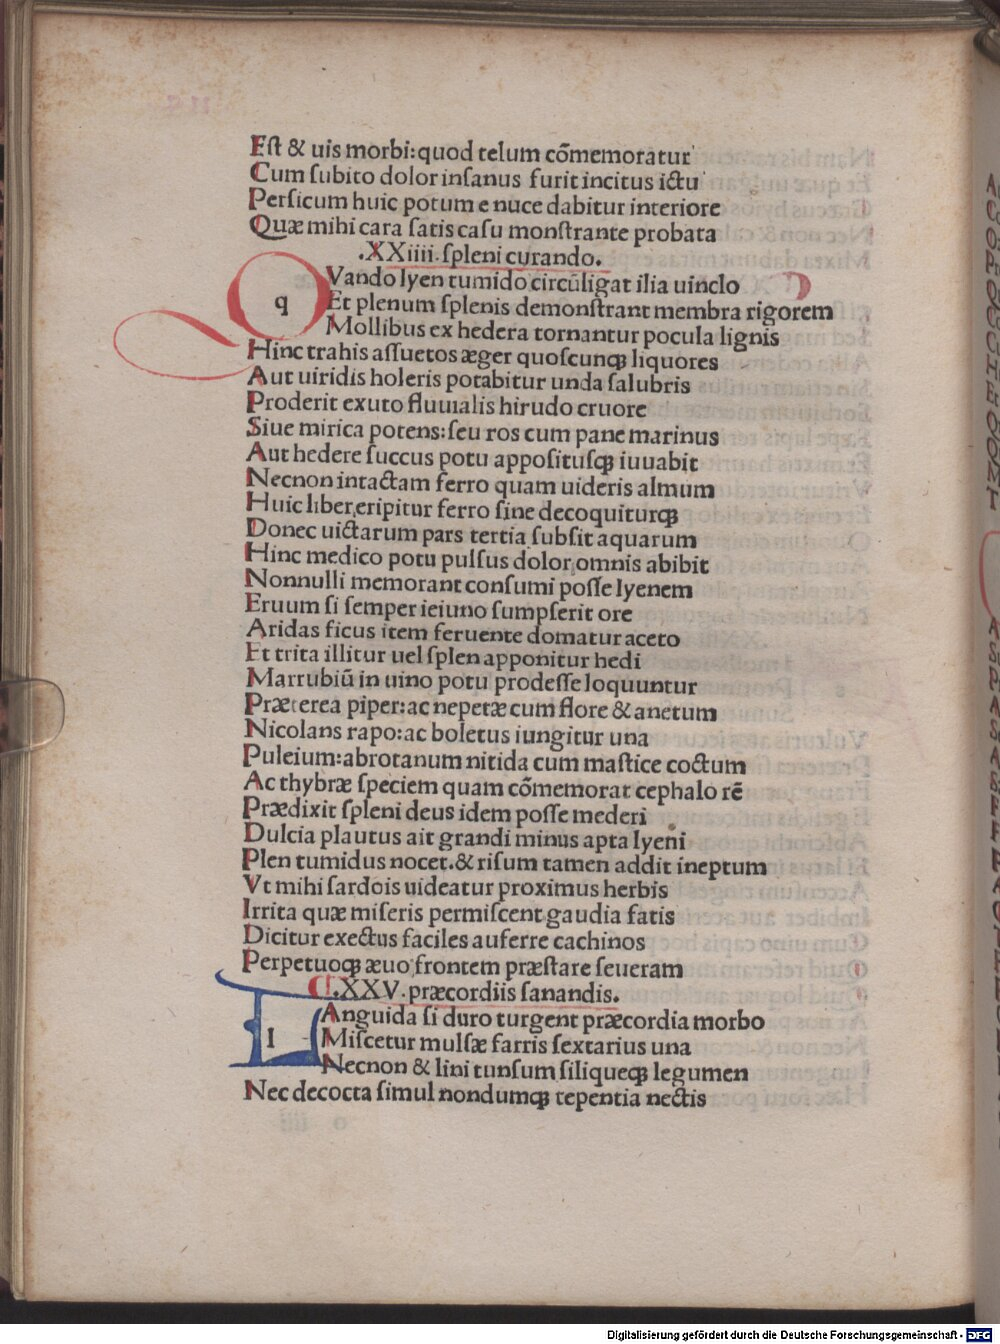 Eſt & uis morbi:quod telum cōmemoratur
Cum ſubito dolor inſanus furit incitus ictu
Perſicum huic potum e nuce dabitur interiore
Quæ mihi cara ſatis caſu monſtrante probata
.XXiiii.ſpleni curando.
q
Vando lyen tumido circūligat ilia uinclo
Et plenum ſplenis demonſtrant membra rigorem
Mollibus ex hedera tornantur pocula lignis
Hinc trahis aſſuetos æger quoſcunqꝫ liquores
Aut uiridis holeris potabitur unda ſalubris
Proderit exuto fluuialis hirudo cruore
Siue mirica potens:ſeu ros cum pane marinus
Aut hedere ſuccus potu appoſituſqꝫ iuuabit
Necnon intactam ferro quam uideris almum
Huic liber,eripitur ferro ſine decoquiturqꝫ
Donec uictarum pars tertia ſubſit aquarum
Hinc medico potu pulſus dolor,omnis abibit
Nonnulli memorant conſumi poſſe lyenem
Eruum ſi ſemper ieiuno ſumpſerit ore
Aridas ficus item feruente domatur aceto
Et trita illitur uel ſplen apponitur hedi
Marrubiū in uino potu prodeſſe loquuntur
Præterea piper:ac nepetæ cum flore & anetum
Nicolans rapo:ac boletus iungitur una
Puleium:abrotanum nitida cum maſtice coctum
Ac thybræ ſpeciem quam cōmemorat cephalo rē
Prædixit ſpleni deus idem poſſe mederi
Dulcia plautus ait grandi minus apta lyeni
Plen tumidus nocet.& riſum tamen addit ineptum
Vt mihi ſardois uideatur proximus herbis
Irrita quæ miſeris permiſcent gaudia fatis
Dicitur exectus faciles auferre cachinos
Perpetuoqꝫ æuo frontem præſtare ſeueram
.XXV.præcordiis ſanandis.
L
l
Anguida ſi duro turgent præcordia morbo
Miſcetur mulſæ farris ſextarius una
Necnon & lini tunſum ſiliqueqꝫ legumen
Nec decocta ſimul nondumqꝫ tepentia nectis
Digitalisierung gefördert durch die Deutsche Forschungsgemeinschaft - DFG